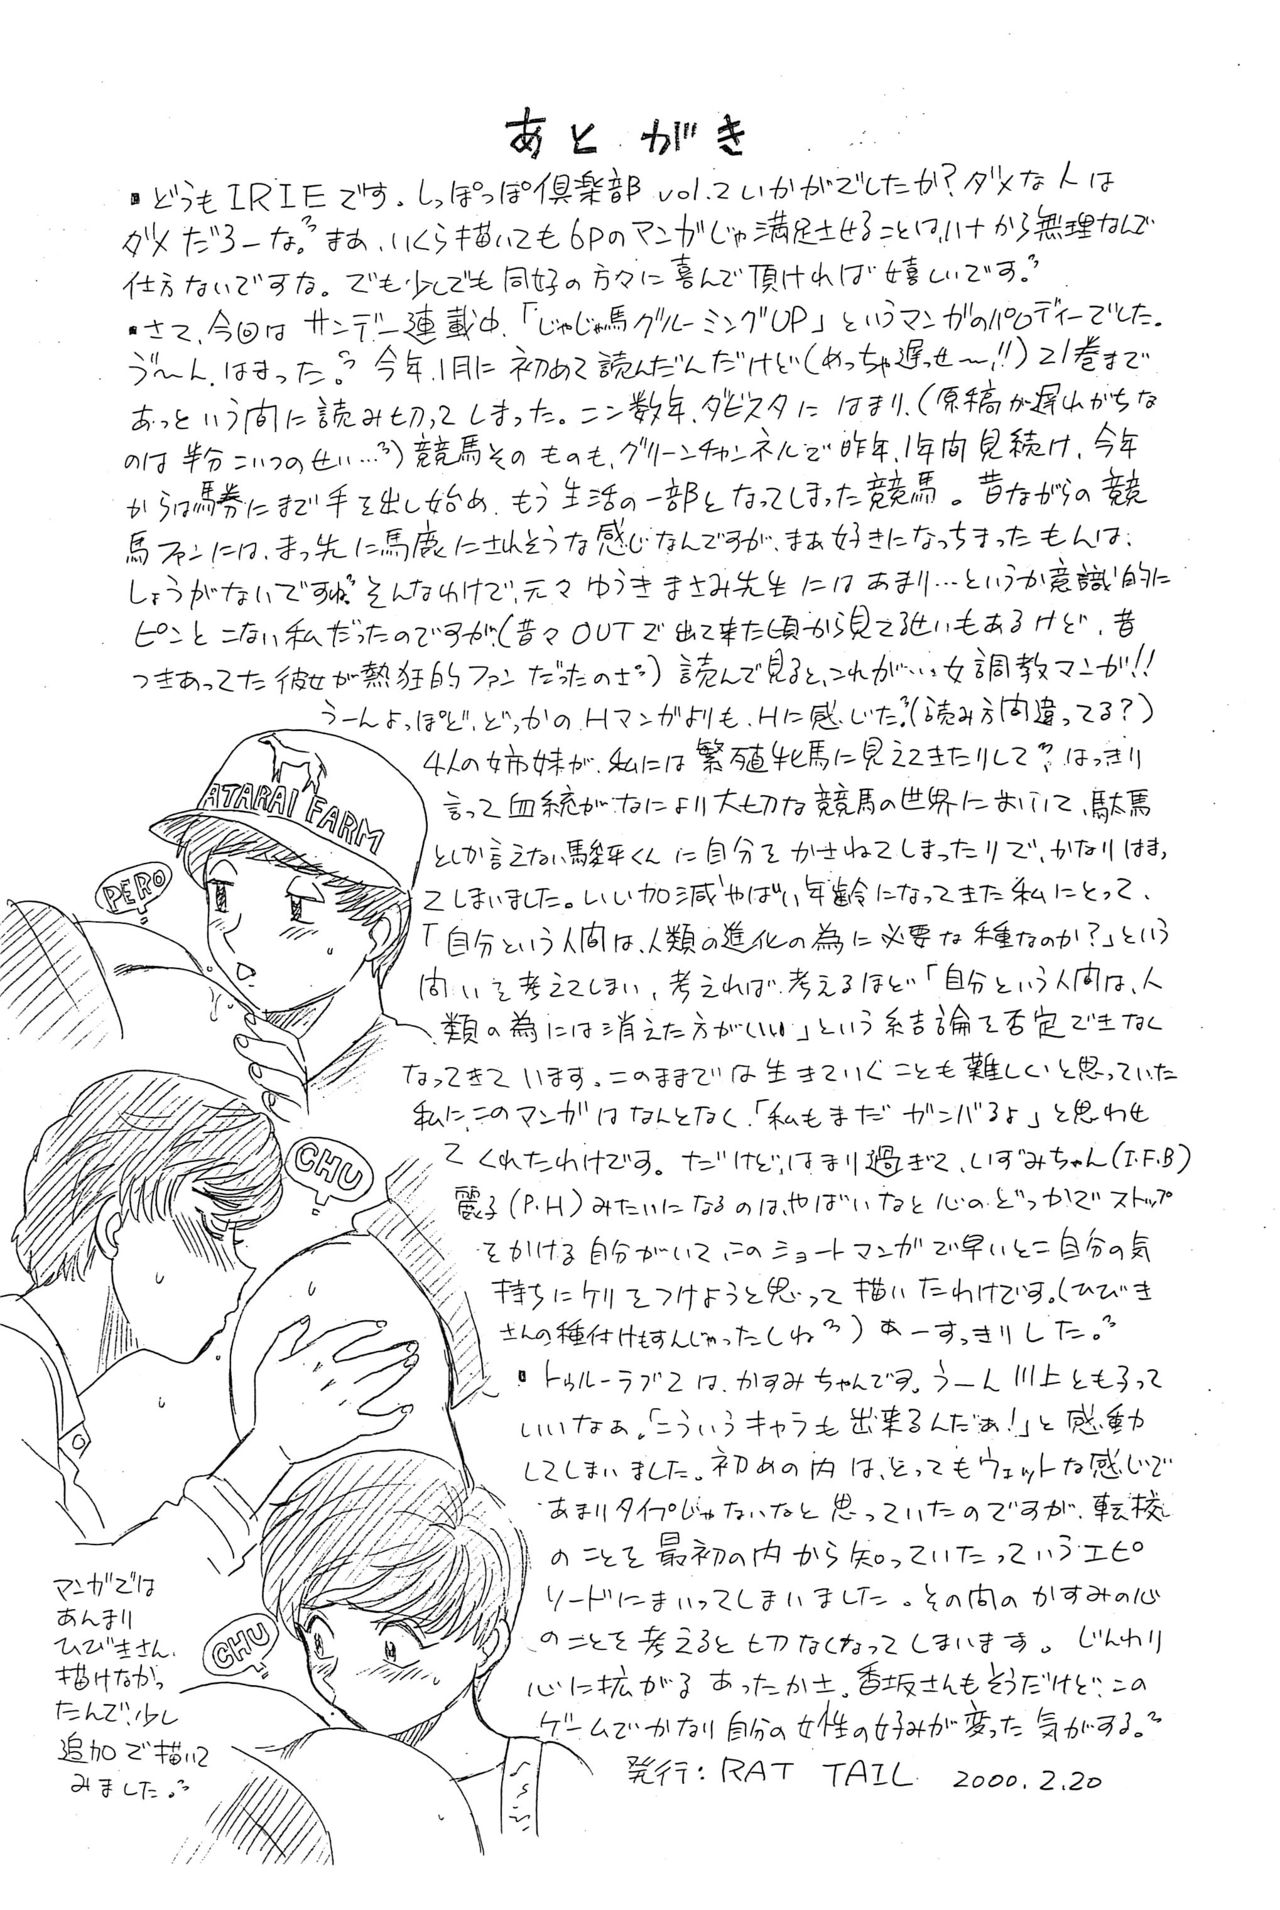 あとがき
・どうもIRIEです。しっぽっぽ倶楽部 vol.2いかがでしたか?ダメな人は
ダメだろーな。まあ、いくら描いても6Pのマンガじゃ満足させることは、ハナから無理なんで
仕方ないですな。でも少しでも同好の方々に喜んで頂ければ嬉しいです。
・さて、今回はサンデー連載中、「じゃじゃ馬グルーミングUP」というマンガのパロディーでした。
う〜ん、はまった。今年、1月に初めて読んだんだけど(めっちゃ遅っせ〜!!)21巻まで
あっという間に読み切ってしまった。ここ数年、ダビスタにはまり、(原稿が遅れがちな
のは半分こいつのせい…)競馬そのものも、グリーンチャンネルで昨年、1年間見続け、今年
からは馬券にまで手を出し始め、もう生活の一部となってしまった競馬。昔ながらの競
馬ファンには、まっ先に馬鹿にされそうな感じなんですが、まあ好きになっちまったもんは、
しょうがないですね。そんなわけで、元々ゆうきまさみ先生にはあまり…というか意識的に
ピンとこない私だったのですが、(昔々OUTで出て来た頃から見てる世いもあるけど、昔
つきあってた彼女が熱狂的ファンだったのさ)読んで見ると、これがいい女調教マンガ!!
うーんよっぽど、どっかのHマンガよりも、Hに感じた。(読み方間違ってる?)
4人の姉妹が、私には繁殖牝馬に見えてきたりして、はっきり
言って血統がなにより大切な競馬の世界において、駄馬
としか言えない駿平くんに自分をかさねてしまったりで、かなりはまっ
てしまいました。いい加減やばい年齢になってきた私にとって、
「自分という人間は、人類の進化の為に必要な種なのか?」という
問いを考えてしまい、考えれば考えるほど「自分という人間は、人
類の為には消えた方がいい」という結論を否定できなく
なってきています。このままでは生きていくことも難しくいと思っていた
私に、このマンガはなんとなく、「私もまだガンバるよ」と思わせ
てくれたわけです。だけど、はまり過ぎて、いずみちゃん(I.F.B)
麗子(P.H)みたいになるのは、やばいなと心のどっかでストップ
をかける自分がいて、このショートマンガで早いとこ自分の気
持ちにケリをつけようと思って描いたわけです。(ひびき
さんの種付けもすんじゃったしね)あーすっきりした。
・トゥルーラブ2は、かすみちゃんです。うーん川上とも子って
いいなぁ。「こういうキャラも出来るんだぁ!」と感動
してしまいました。初めの内は、とってもウェットな感じで
あまりタイプじゃないなと思っていたのですが、転校
のことを最初の内から知っていたっていうエピ
ソードにまいってしまいました。その間のかすみの心
のことを考えると切なくなってしまいます。じんわり
心に拡がるあったかさ。香坂さんもそうだけど、この
ゲームでかなり自分の女性の好みが変った気がする。
発行:RAT TAIL 2000.2.20
ATARAI FARM
PERO
CHU
CHU
マンガでは
あんまり
ひびきさん、
描けなかっ
たんで、少し
追加で描いて
みました。